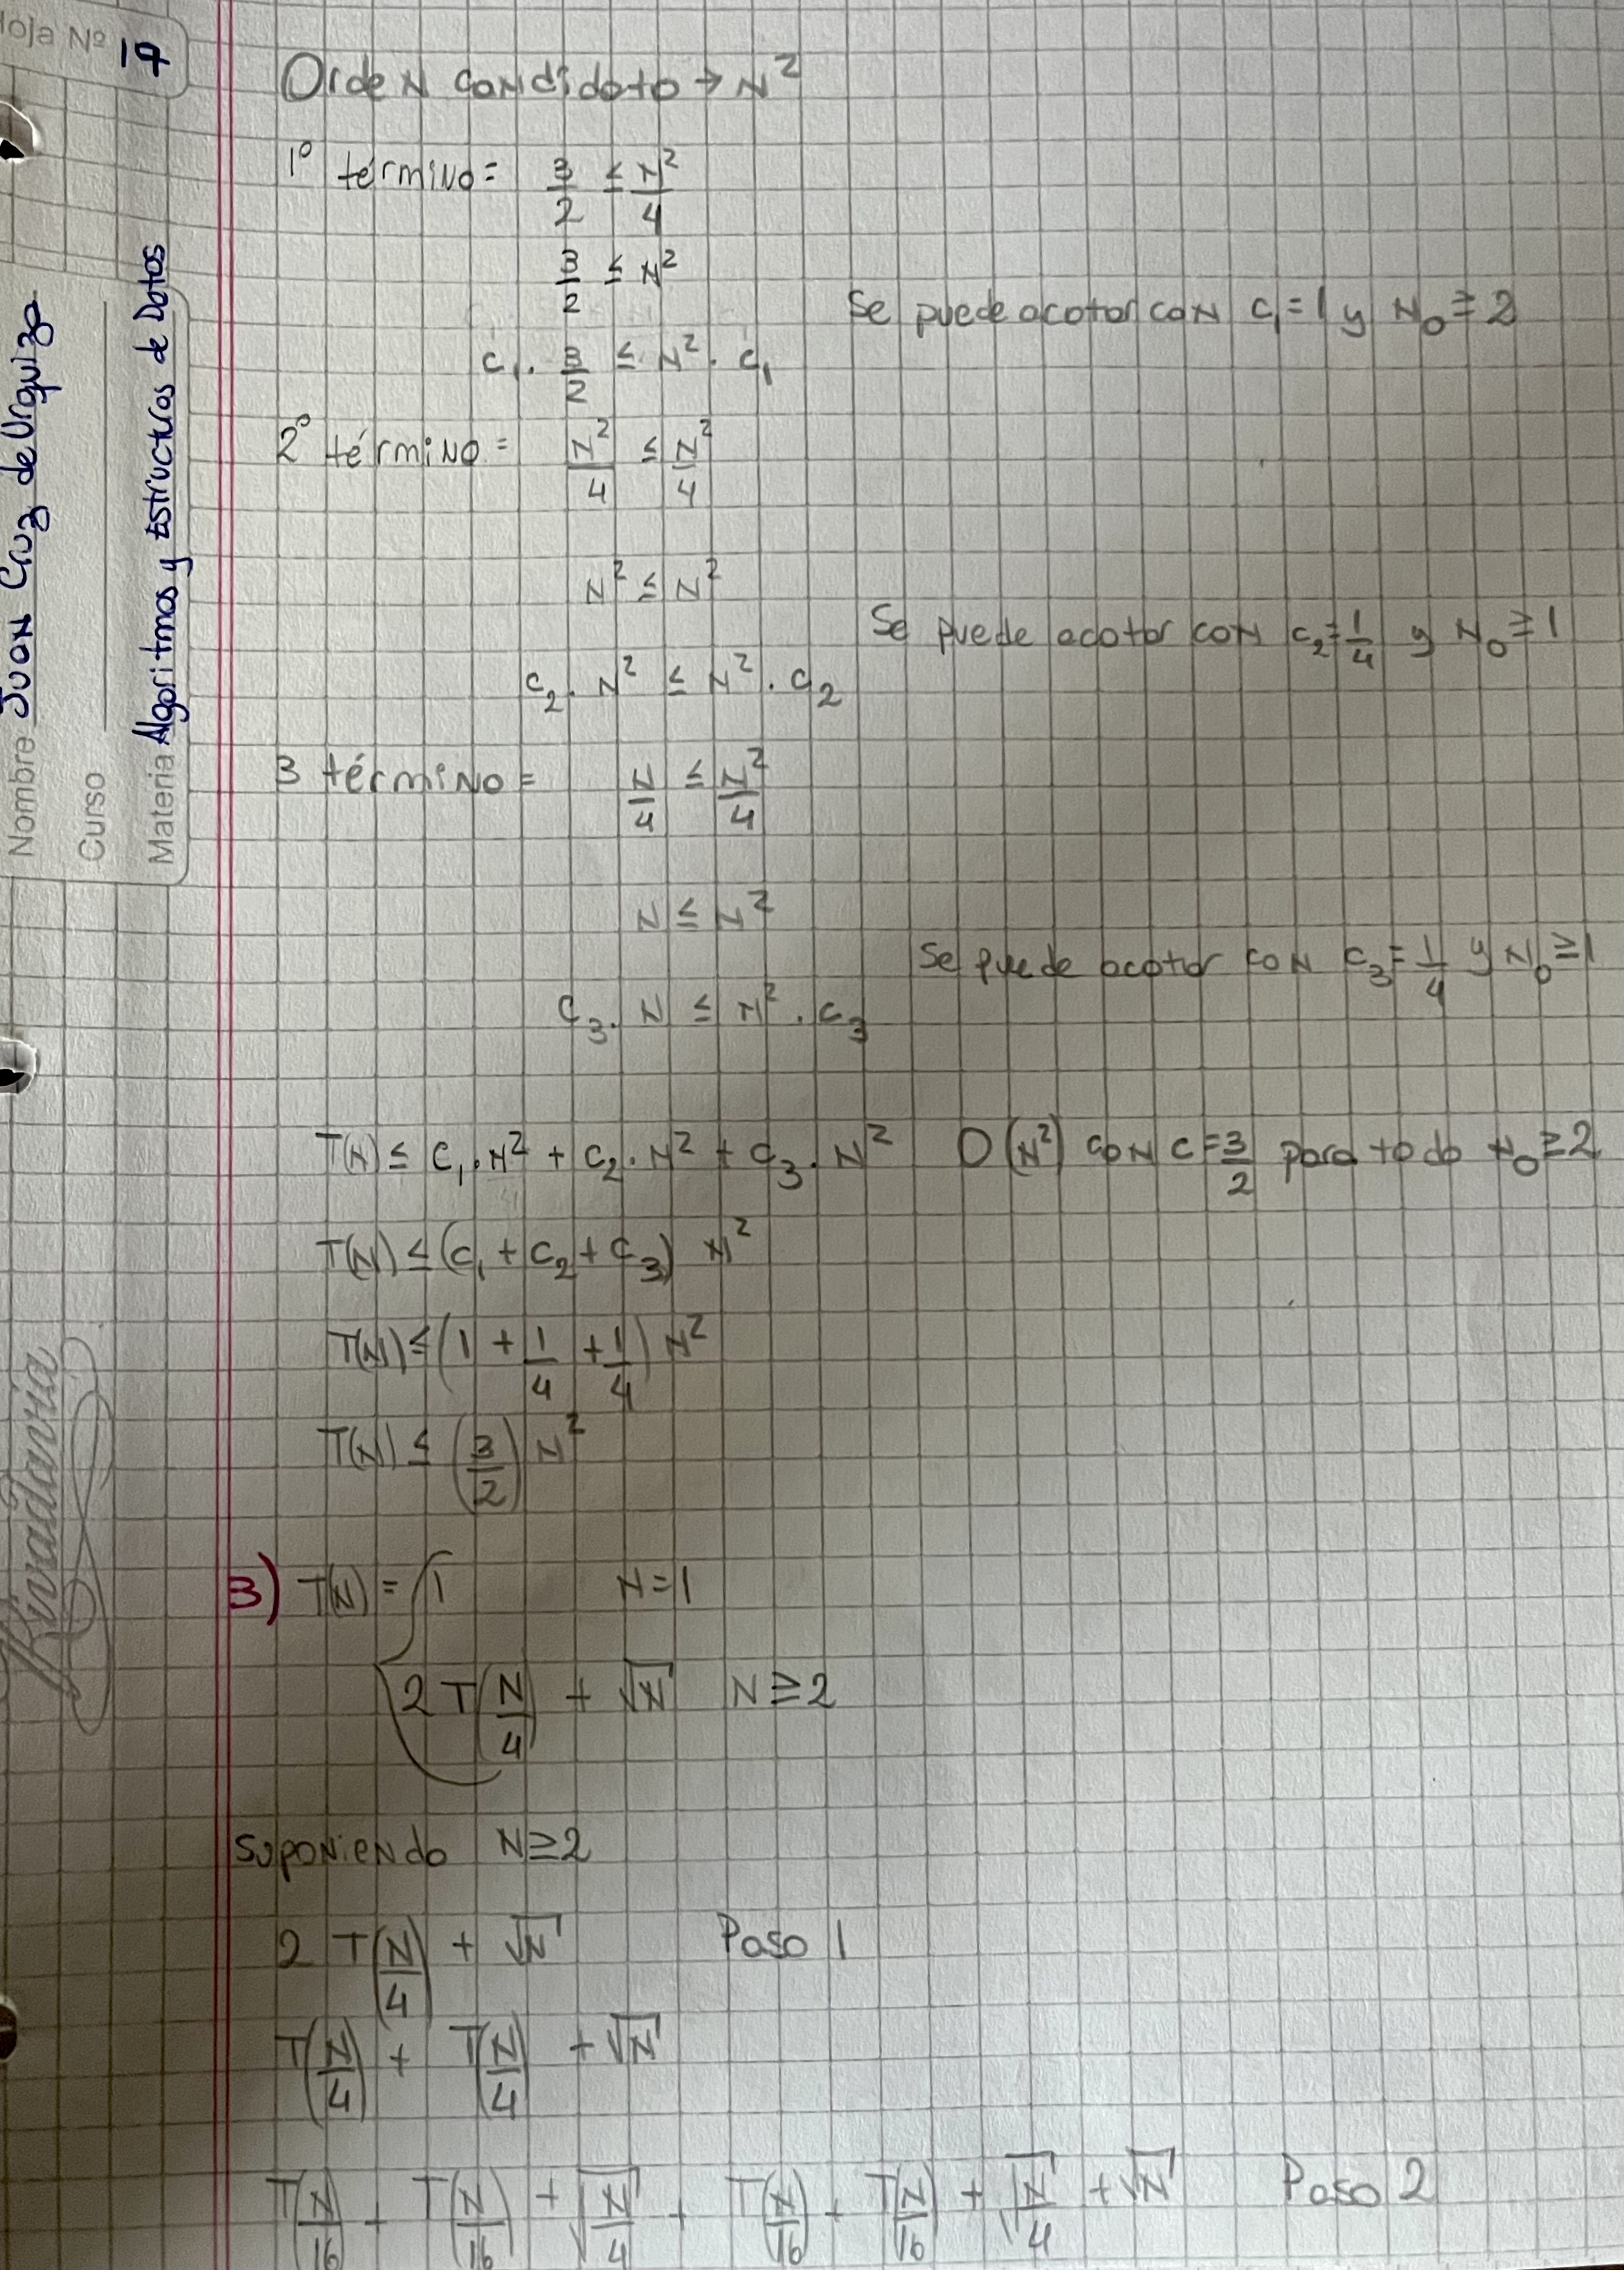 Hoja Nº 17
Nombre Juan Cruz de Urquiza
Curso
Materia Algoritmos y Estructuras de Datos
Rivadavia
Orden candidato → N²
1º término = 3/2 ≤ N²/4
3/2 ≤ N²
Se puede acotar con c₁ = 1 y N₀ ≥ 2
c₁ . 3/2 ≤ N² . c₁
2º término = N²/4 ≤ N²/4
N² ≤ N²
Se puede acotar con c₂ = 1/4 y N₀ ≥ 1
c₂ . N² ≤ N² . c₂
3 término = N/4 ≤ N²/4
N ≤ N²
Se puede acotar con c₃ = 1/4 y N₀ ≥ 1
c₃ . N ≤ N² . c₃
T(N) ≤ c₁ . N² + c₂ . N² + c₃ . N² O(N²) con c = 3/2 para todo N₀ ≥ 2
T(N) ≤ (c₁ + c₂ + c₃) N²
T(N) ≤ (1 + 1/4 + 1/4) N²
T(N) ≤ (3/2) N²
3) T(N) = { 1 N = 1
2 T(N/4) + √N N ≥ 2
Suponiendo N ≥ 2
2 T(N/4) + √N Paso 1
T(N/4) + T(N/4) + √N
T(N/16) + T(N/16) + √N/4 + T(N/16) + T(N/16) + √N/4 + √N Paso 2